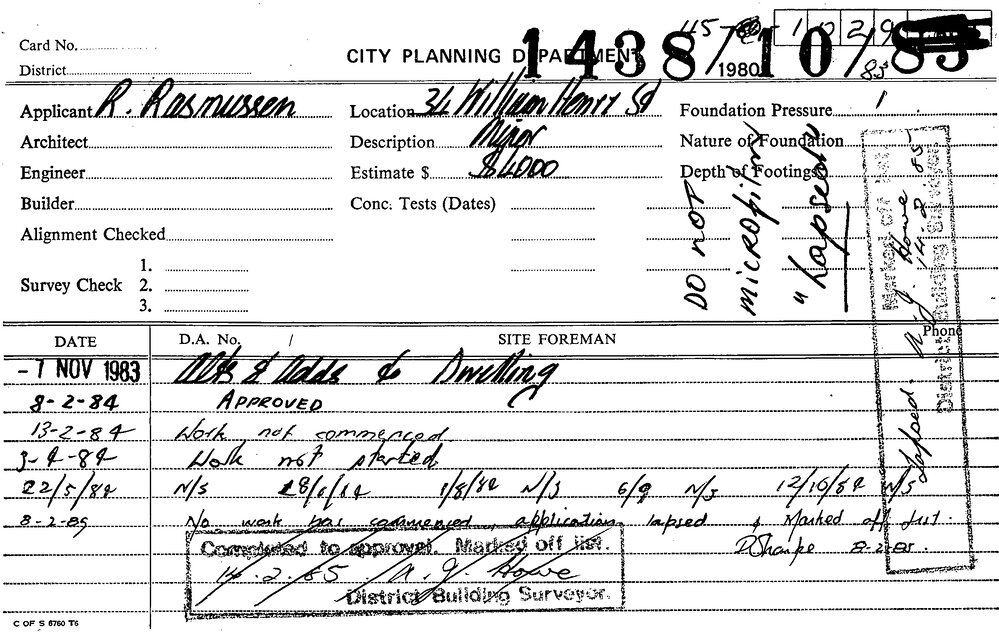 45- 1029
Card No.
CITY PLANNING DEPARTMENT 1438/1980 10/83
District 85
Applicant R. Rasmussen Location 34 William Henry St Foundation Pressure 1
Architect Description Minor Nature of Foundation
Engineer Estimate $ $4000 Depth of Footings
Builder Conc. Tests (Dates)
Alignment Checked
1.
Survey Check 2.
3.
DO NOT
MICROFILM
"Lapsed"
Marked off list.
Lapsed. A. J. Howe 14-2-85
District Building Surveyor.
DATE D.A. No. / SITE FOREMAN Phone
- 7 NOV 1983 Alts & Adds to Dwelling
8-2-84 APPROVED
13-2-84 Work not commenced.
3-4-84 Work not started
22/5/84 N/S 28/6/84 1/8/84 N/S 6/9 N/S 12/10/84 N/S
8-2-85 No work has commenced, application lapsed & Marked off list.
DSharpe 8-2-85.
Completed to approval. Marked off list.
14.2.85 A. J. Howe
District Building Surveyor.
C OF S 6760 T6